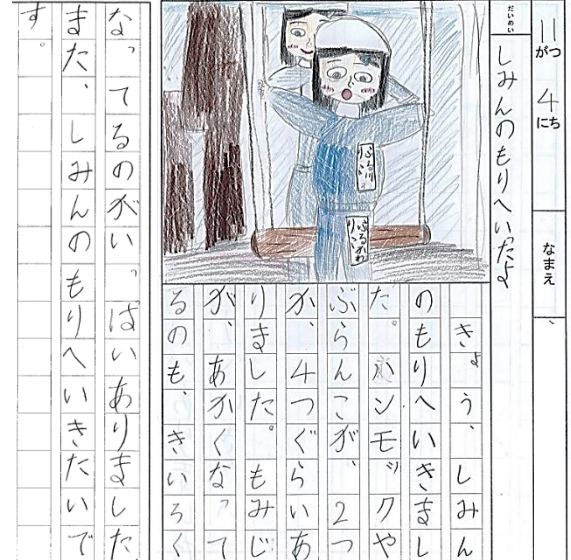 11がつ4にち
なまえ
だいめい
しみんのもりへいったよ
きょう、しみん
のもりへいきまし
た。ハンモックや
ぶらんこが、2つ
か、4つぐらいあ
りました。もみじ
が、あかくなって
るのも、きいろく
なってるのがいっぱいありました
また、しみんのもりへいきたいで
す。